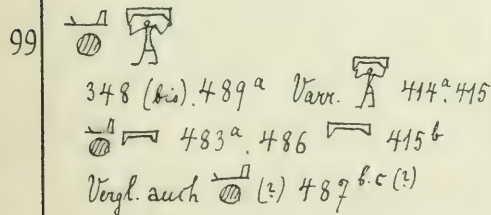 99
348 (bis). 489ª Varr. 414ª. 415
483ª. 486 415ᵇ
Vergl. auch (?) 487ᵇ·ᶜ (?)